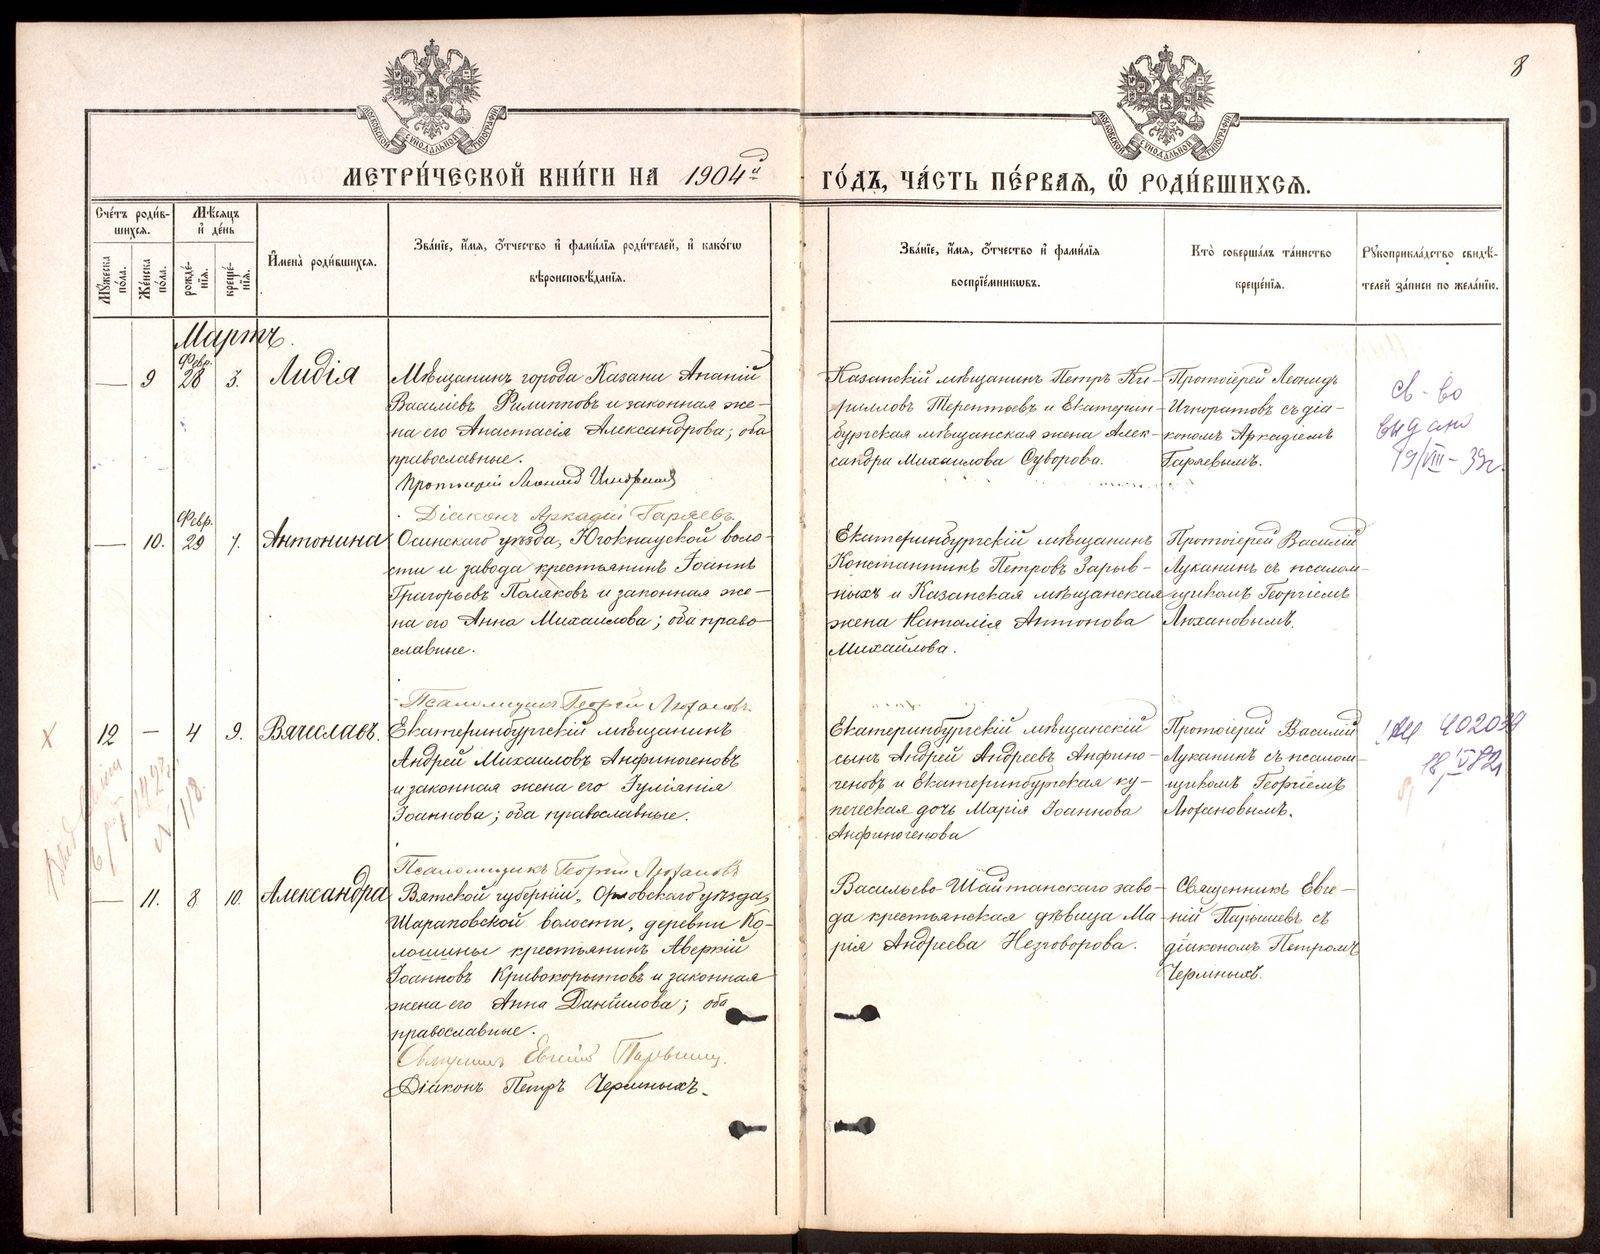 8
МОСКОВСКОЙ СѴНОДАЛЬНОЙ ТИПОГРАФІИ
МОСКОВСКОЙ СѴНОДАЛЬНОЙ ТИПОГРАФІИ
МЕТРИ́ЧЕСКОЙ КНИ́ГИ НА 1904й ГО́ДЪ, ЧА́СТЬ ПЕ́РВАѦ, Ѡ҆ РОДИ́ВШИХСѦ.
Сче́тъ роди́в-
шихсѧ.
Мꙋ́жеска по́ла.
Же́нска по́ла.
Мѣ́сѧцъ и҆ де́нь
рожде́-
нїѧ.
креще́-
нїѧ.
И҆мена̀ роди́вшихсѧ.
Зва́нїе, и҆́мѧ, ѻ҆́тчество и҆ фами́лїѧ роди́телей, и҆ како́гѡ
вѣроисповѣ́данїѧ.
Зва́нїе, и҆́мѧ, ѻ҆́тчество и҆ фами́лїѧ
воспрїе́мникѡвъ.
Кто̀ соверша́лъ та́инство
креще́нїѧ.
Рꙋкоприкла́дство свидѣ́-
телей за́писи по жела́нїю.
Мартъ.
— 9 Февр. 28 3. Лидія
Мѣщанинъ города Казани Ананій
Василіевъ Филипповъ и законная же-
на его Анастасія Александрова; оба
православные.
Протоіерей Леонид Игноратов
Діаконъ Аркадій Гаряевъ.
Казанскій мѣщанинъ Петръ Ки-
рилловъ Терентьевъ и Екатерин-
бургская мѣщанская жена Алек-
сандра Михаилова Суворова.
Протоіерей Леонидъ
Игноратовъ съ діа-
кономъ Аркадіемъ
Гаряевымъ.
св-во
выдано
19/VIII-39г.
— 10. Февр. 29 7. Антонина
Осинскаго уѣзда, Югокнауской воло-
сти и завода крестьянинъ Іоаннъ
Григорьевъ Поляковъ и законная же-
на его Анна Михаилова; оба право-
славные.
Псаломщикъ Георгій Люхановъ.
Екатеринбургскій мѣщанинъ
Константинъ Петровъ Зарыв-
ныхъ и Казанская мѣщанская
жена Наталія Антонова
Михайлова.
Протоіерей Василій
Луканинъ съ псалом-
щикомъ Георгіемъ
Люхановымъ.
12 — 4 9. Вячеславъ.
Екатеринбургскій мѣщанинъ
Андрей Михаиловъ Анфиногеновъ
и законная жена его Іуліанія
Іоаннова; оба православные.
Псаломщикъ Георгій Люхановъ
Екатеринбургскій мѣщанскій
сынъ Андрей Андреевъ Анфино-
геновъ и Екатеринбургская ку-
печеская дочь Марія Іоаннова
Анфиногенова
Протоіерей Василій
Луканинъ съ псалом-
щикомъ Георгіемъ
Люхановымъ.
402039
— 11. 8 10. Александра
Вятской губерніи, Орловскаго уѣзда,
Шараповской волости, деревни Ко-
лошины крестьянинъ Аверкій
Іоанновъ Кривокорытовъ и законная
жена его Анна Даніилова; оба
православные.
Священникъ Евгеній Парышевъ.
Діаконъ Петръ Чермныхъ.
Васильево-Шайтанскаго заво-
да крестьянская дѣвица Ма-
рія Андреева Незговорова.
Священникъ Евге-
ній Парышевъ съ
діакономъ Петромъ
Чермныхъ.